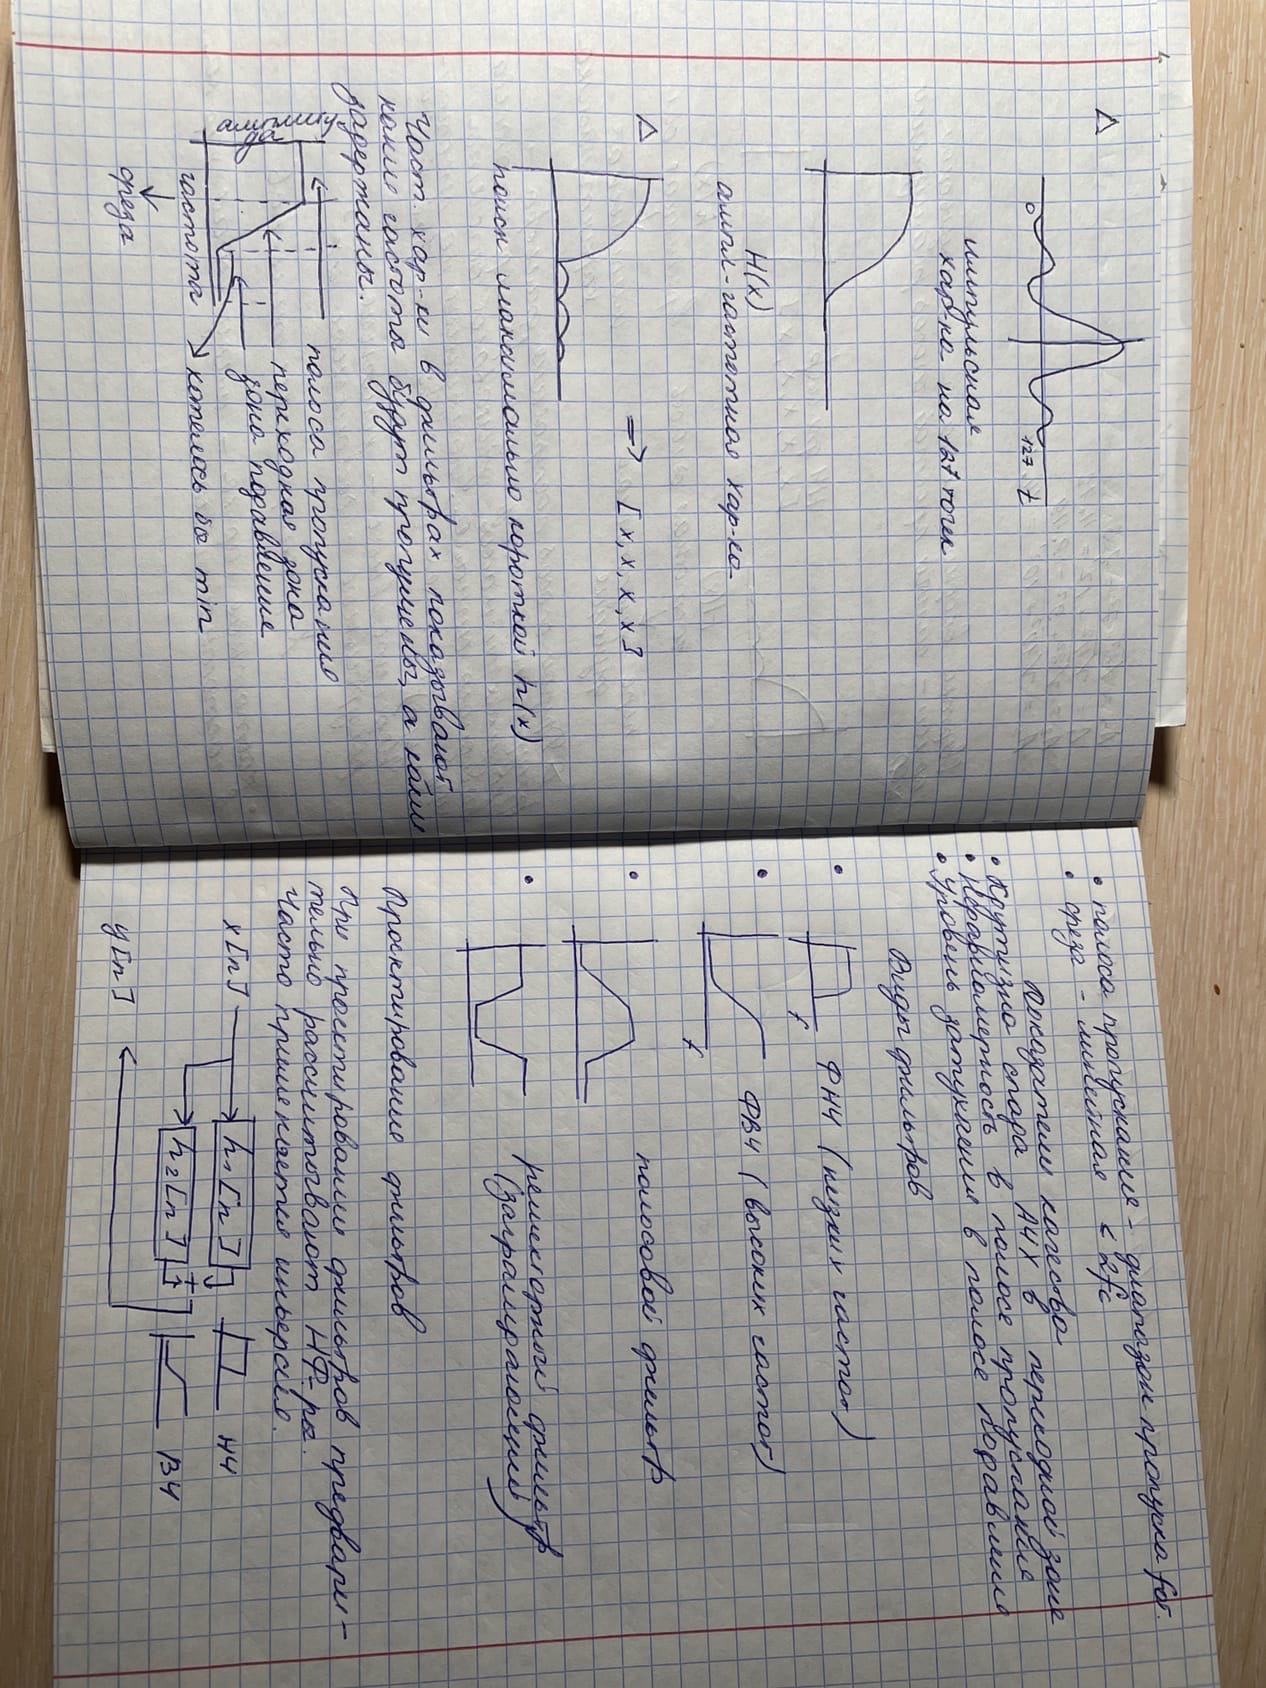 0
127
t
импульсная
хар-ка на 127 точек
H(x)
ампл-частотная хар-ка
=> [x, x, x, x]
поиск максимально короткой h(x)
Част. хар-ки в фильтрах показывают
какие частоты будут пропущены, а какие
задержаны.
амплитуда
полоса пропускания
переходная зона
зона подавление
хотелось бы min
частота
среза
• полоса пропускания - диапазон пропуска
• среза - линейная < 2fc
Показатели качества
• Крутизна спада АЧХ в переходной зоне
• Неравномерность в полосе пропускания
• Уровень затухания в полосе подавления
Виды фильтров
• ФНЧ (низких частот)
f
• ФВЧ (высоких частот)
f
• полосовой фильтр
• режекторный фильтр
(заграждающий)
Проектирование фильтров
При проектировании фильтров предвари-
тельно рассчитывают НФ-ры.
Часто применяется инверсия.
x[n] h₁[n] НЧ
+
h₂[n] ВЧ
y[n]